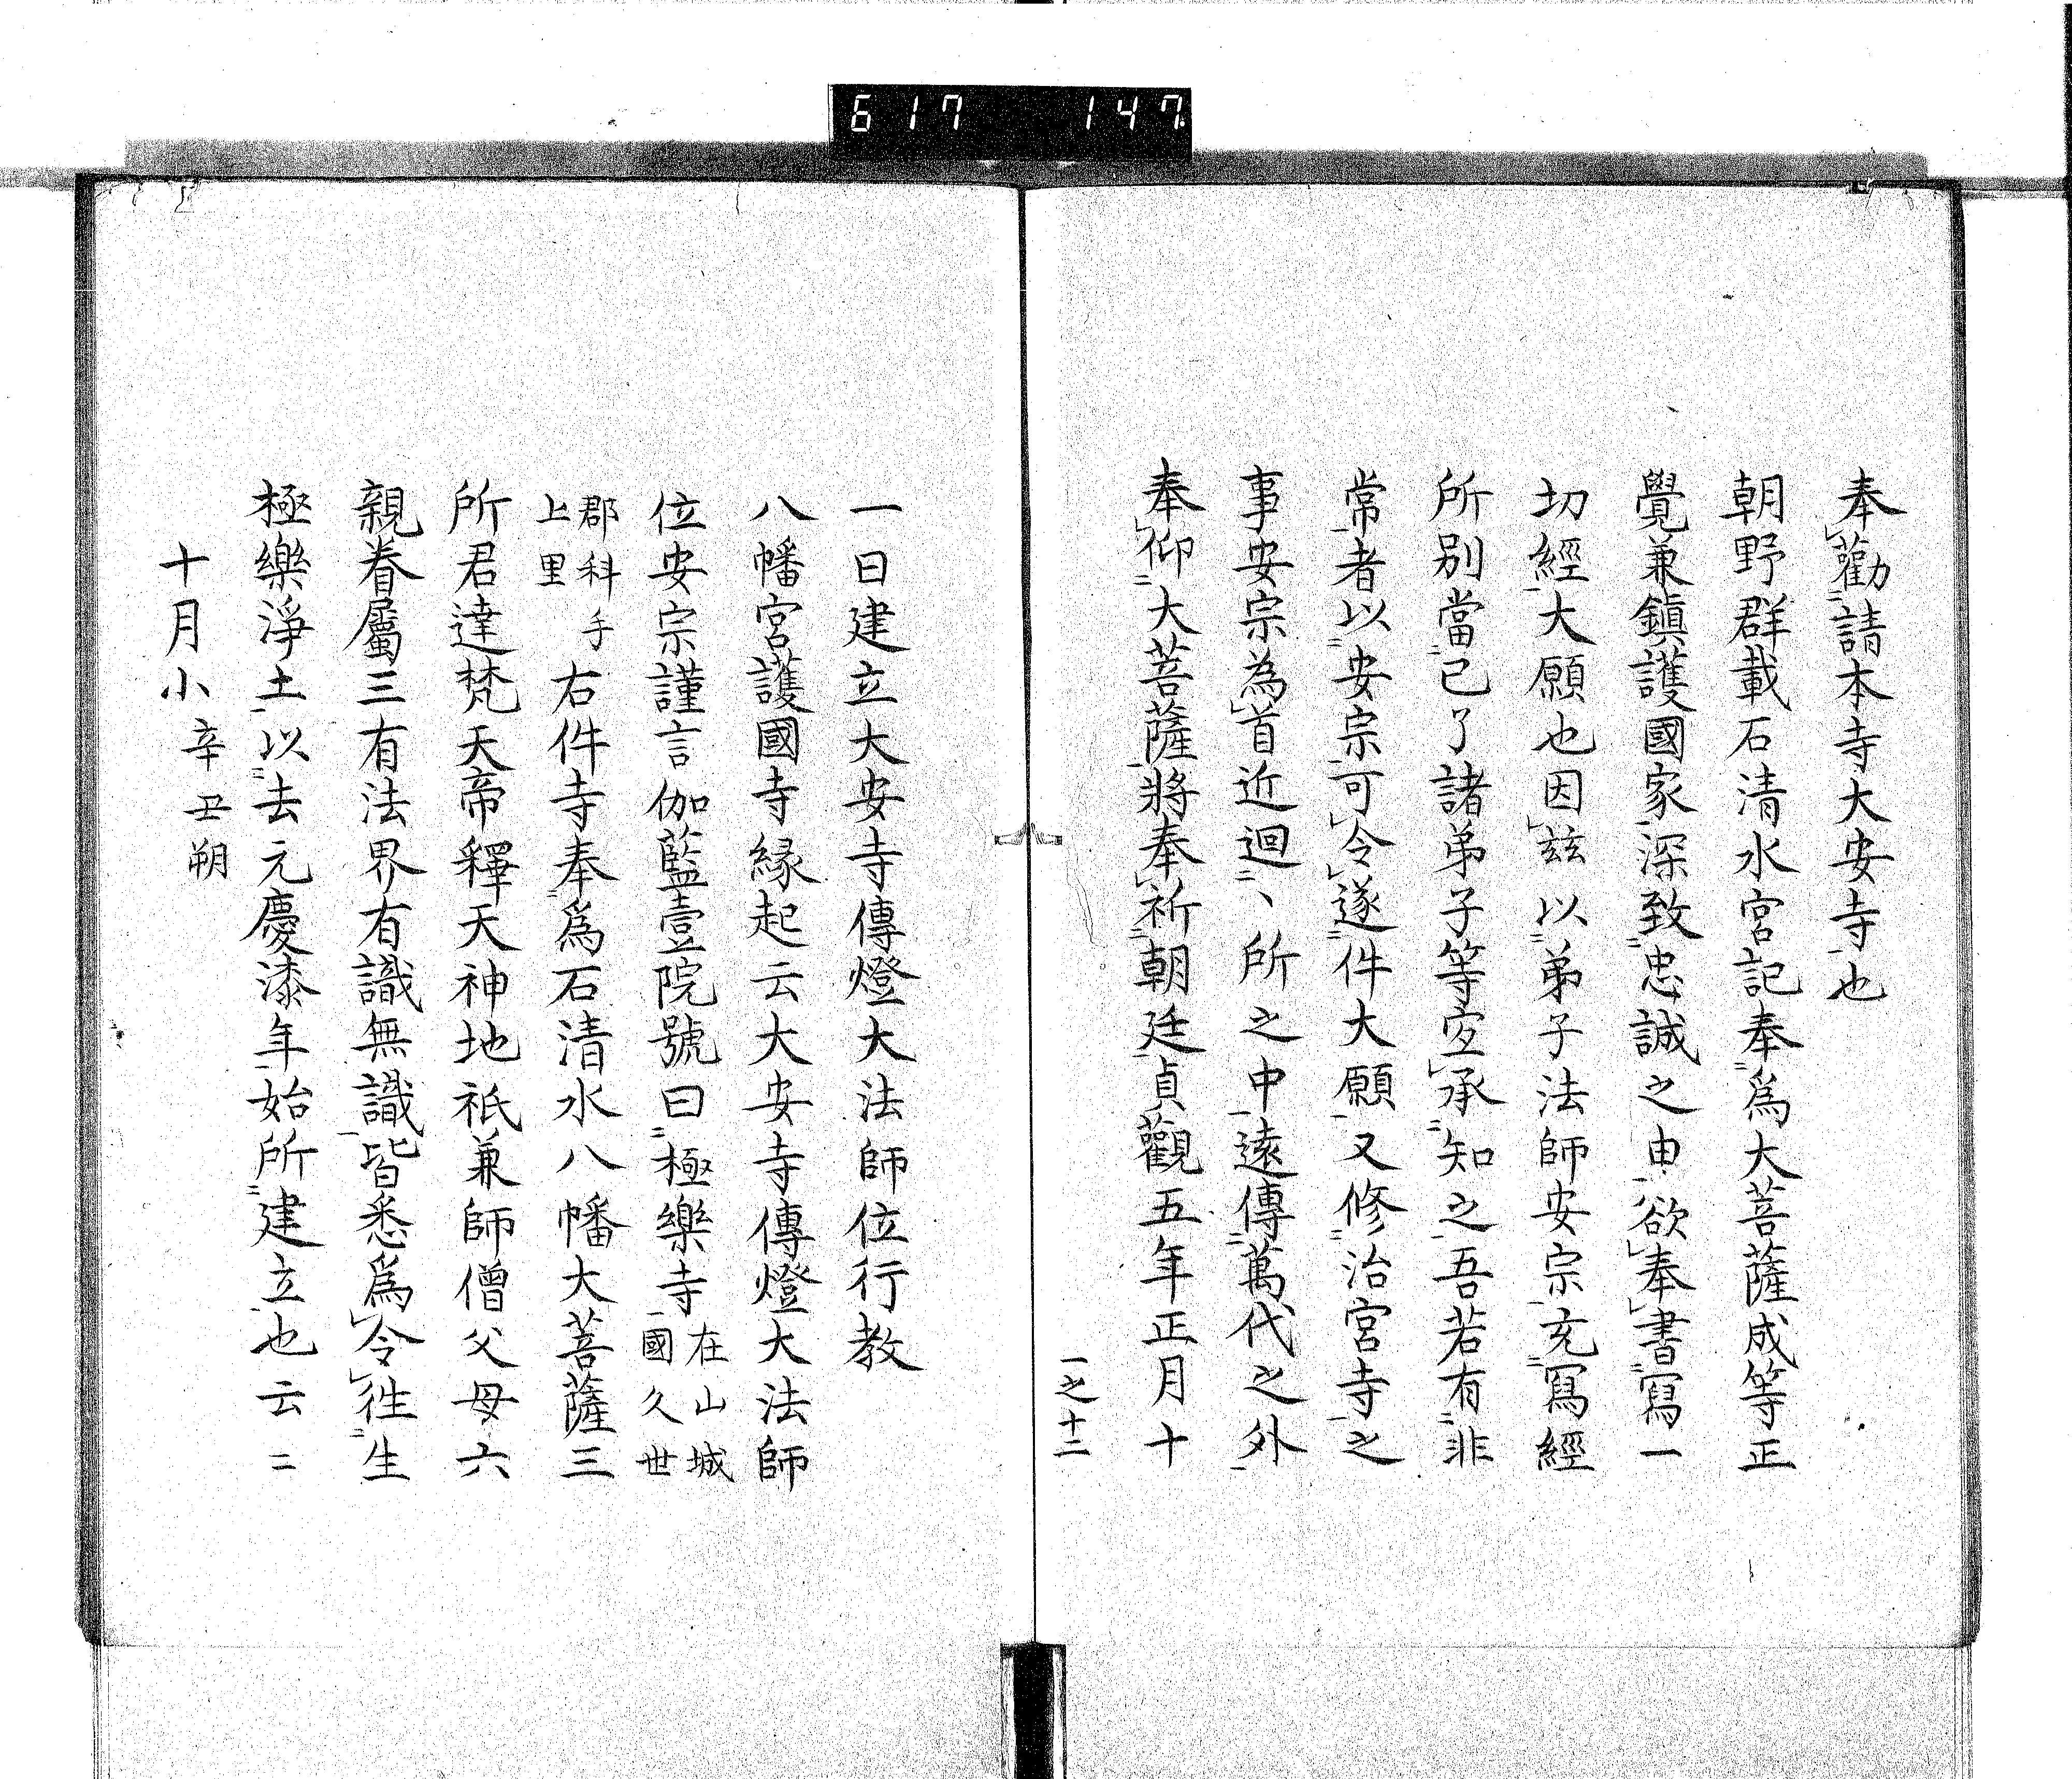 617 147
奉勸請本寺大安寺也
朝野群載石清水宮記奉爲大菩薩成等正
覺兼鎮護國家深致忠誠之由欲奉書寫一
切經大願也因玆以弟子法師安宗充寫經
所別當已了諸弟子等宜承知之吾若有非
常者以安宗可令遂件大願又修治宮寺之
事安宗為首近迴、所之中遠傳萬代之外
奉仰大菩薩將奉祈朝廷貞觀五年正月十
一之十二
一日建立大安寺傳燈大法師位行教
八幡宮護國寺緣起云大安寺傳燈大法師
位安宗謹言伽藍壹院號曰極樂寺在山城國久世
郡科手上里右件寺奉爲石清水八幡大菩薩三
所君達梵天帝釋天神地祇兼師僧父母六
親眷屬三有法界有識無識皆悉爲令往生
極樂淨土以去元慶漆年始所建立也云〻
十月小辛丑朔